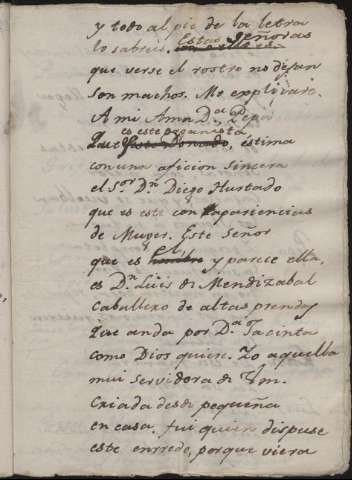 y todo al pie de la letra
lo sabreis. Estas Señoras
que verse el rostro no dejan
son machos. Me explicaré.
A mi Ama D.ª Pepa
es este organista,
que estima
con una aficion sincera
el S.or D.n Diego Hurtado
que es este con apariencias
de Muger. Este Señor
que es el, y parece ella,
es D.n Luis de Mendizabal
Caballero de altas prendas
que anda por D.ª Jacinta
como Dios quiere. Yo aquella
mui servidora de Vm.
criada desde pequeña
en casa, fui quien dispuse
este enrredo, porque viera